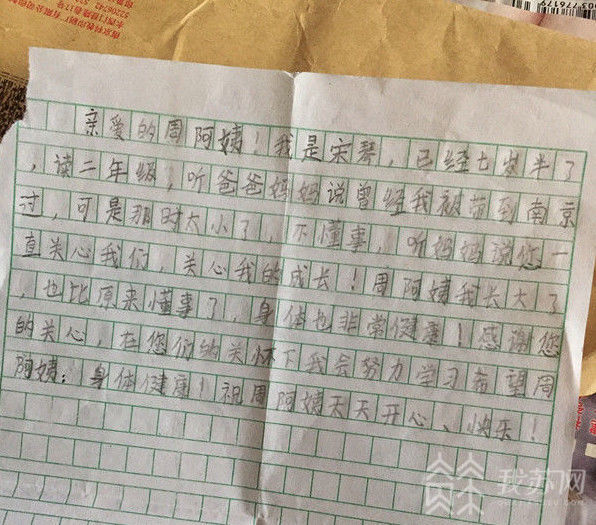 亲爱的周阿姨！我是宋琴，已经七岁半了
，读二年级，听爸爸妈妈说曾经我被带到南京
过，可是那时太小了，不懂事，听妈妈说您一
直关心我们，关心我的成长！周阿姨我长大了
，也比原来懂事了，身体也非常健康！感谢您
的关心，在您们的关怀下我会努力学习希望周
阿姨：身体健康！祝周阿姨天天开心、快乐！
我苏网